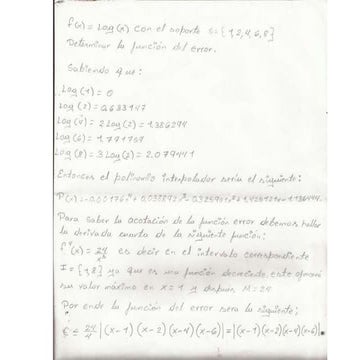 f(x) = Log(x) con el soporte S = {1,2,4,6,8}
Determinar la función del error.
Sabiendo que:
Log(1) = 0
Log(2) = 0.693147
Log(4) = 2Log(2) = 1.386294
Log(6) = 1.791759
Log(8) = 3Log(2) = 2.079441
Entonces el polinomio interpolador sería el siguiente:
Para saber la acotación de la función error debemos hallar
la derivada cuarta de la siguiente función:
es decir en el intervalo correspondiente
I = {1,8} ya que es una función decreciendo, este
su valor máximo en x = 1 y despues M = 24
Por ende la función del error sera la siguiente;
|(x-1)(x-2)(x-4)(x-6)| = |(x-1)(x-2)(x-4)(x-6)|